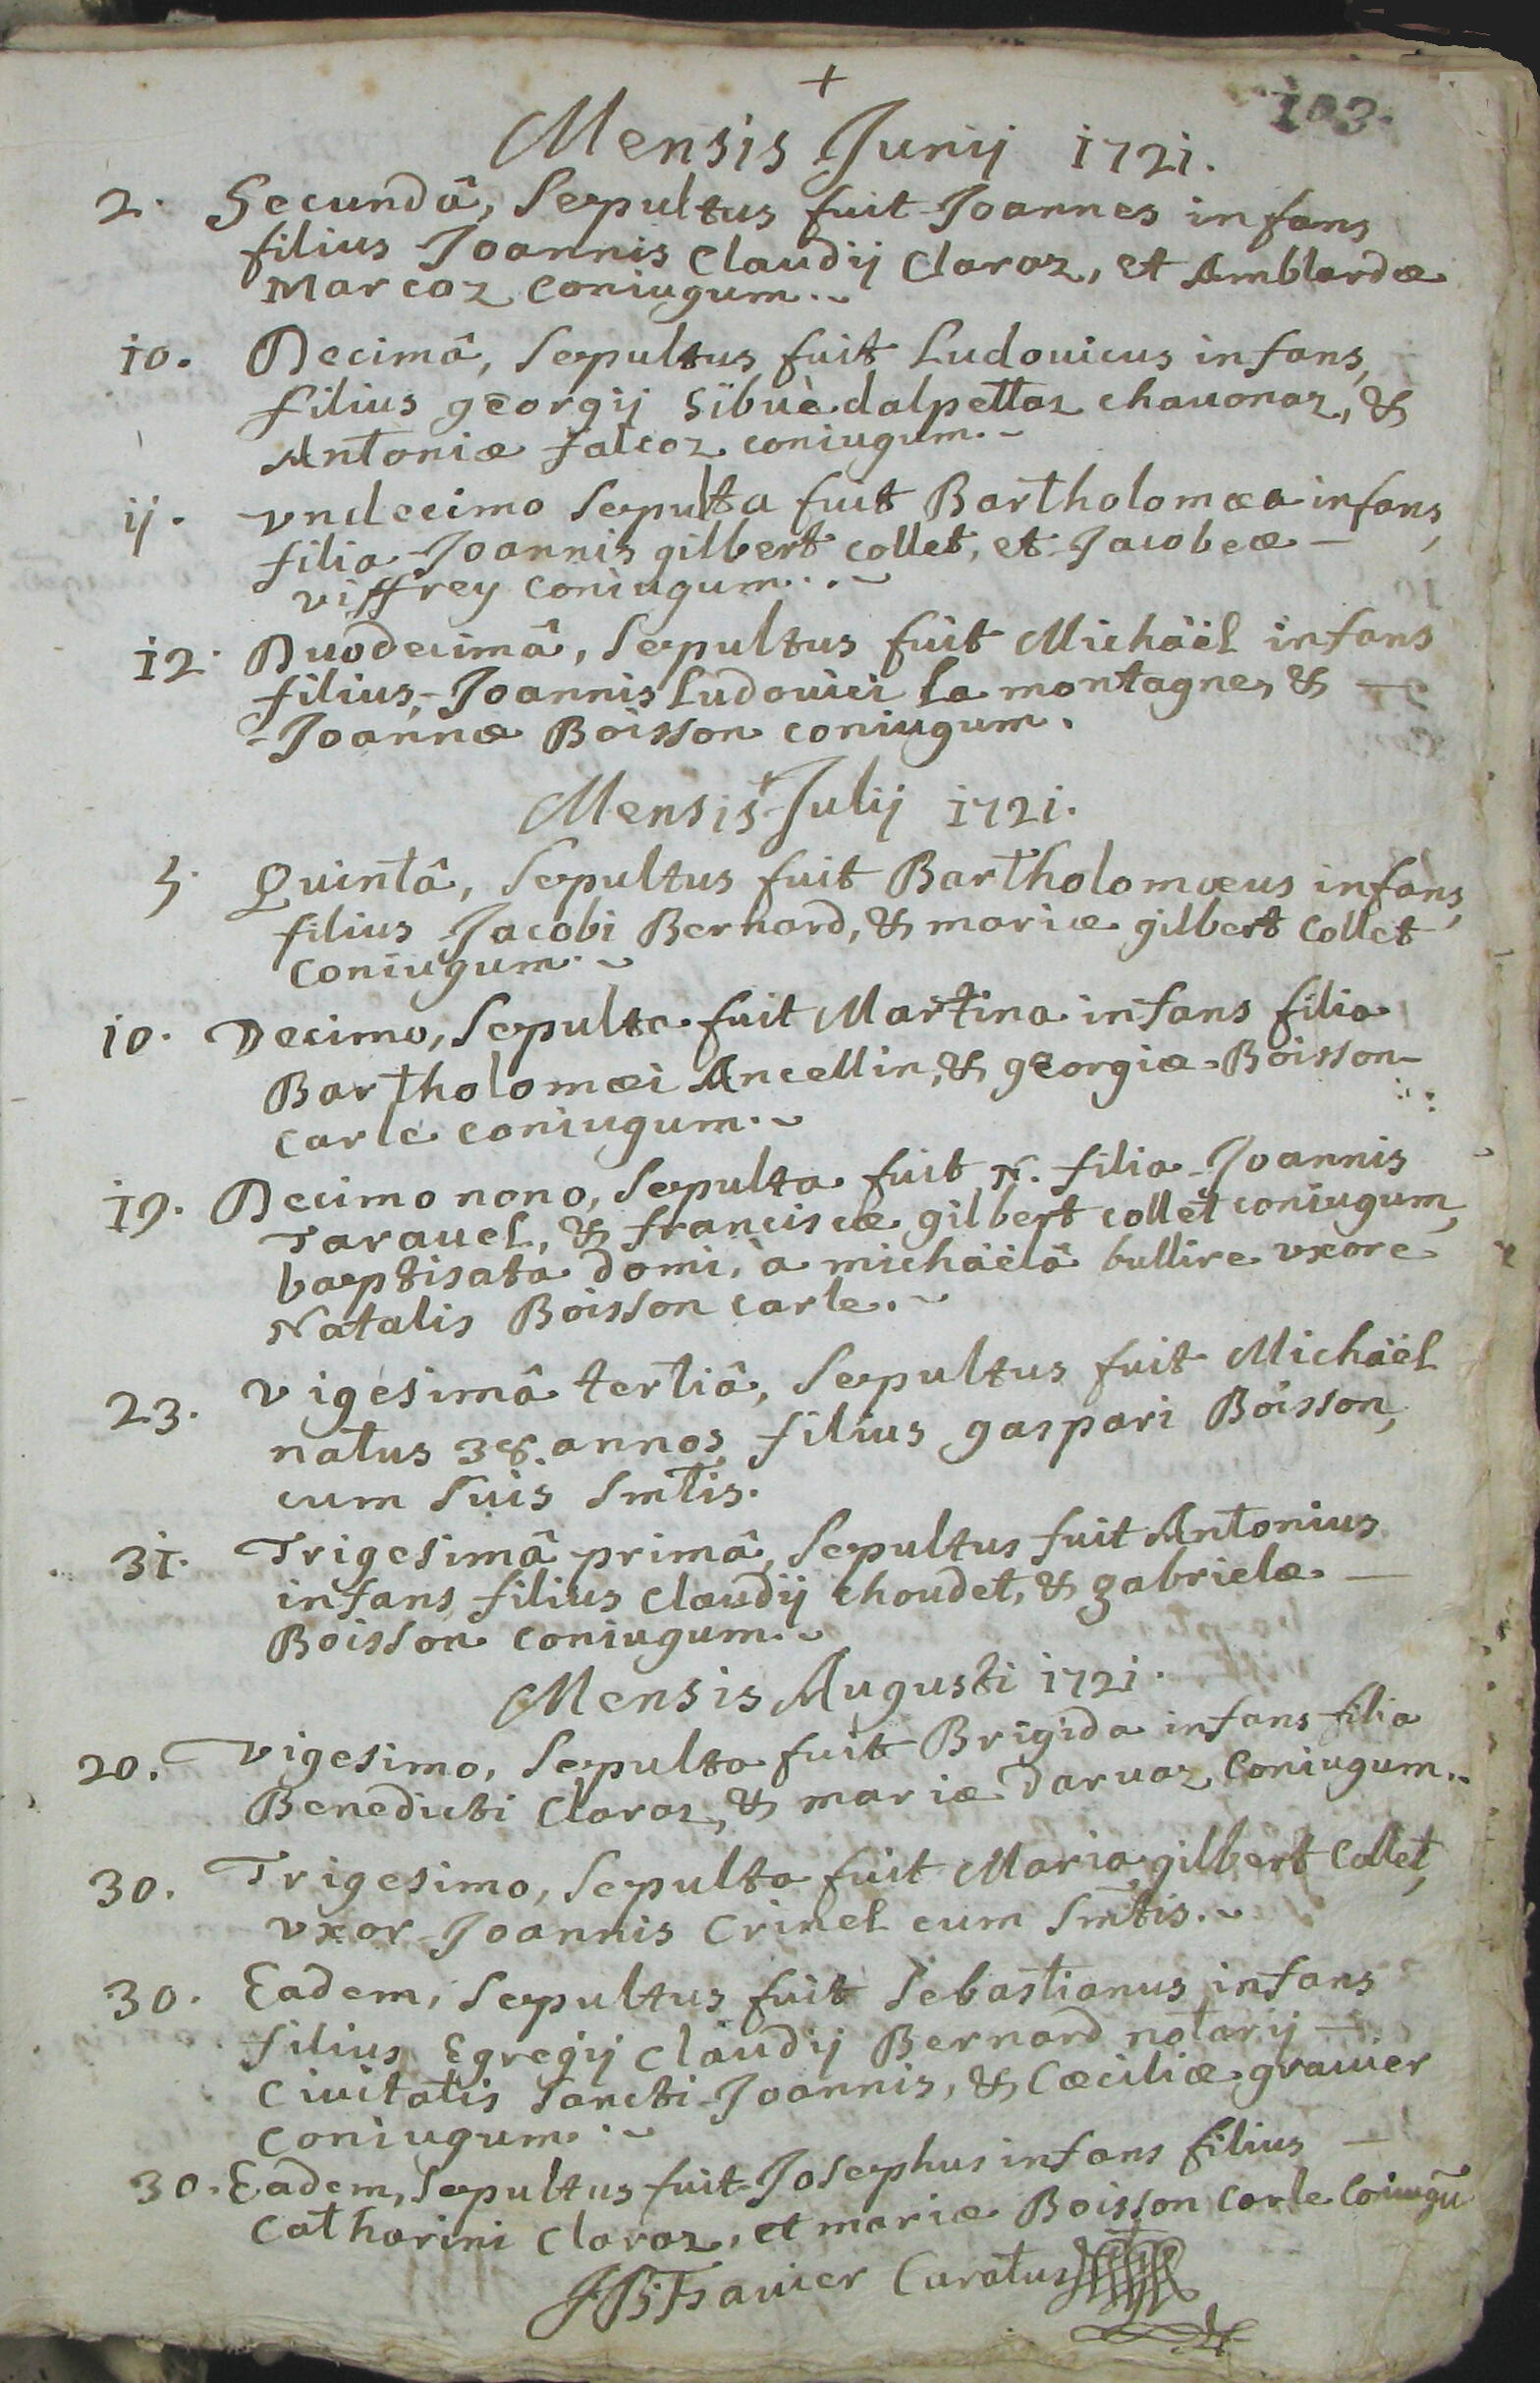 +
103.
Mensis Junij 1721.
2. Secundâ, Sepultus fuit Joannes infans
filius Joannis Claudij Claraz, et Amblardæ
Marcoz coniugum..~
10. Decimâ, Sepultus fuit Ludouicus infans,
filius georgij Sibuè dalpettaz chauonaz, &
Antoniæ falcoz coniugum.~
ij. vndecimo Sepulta fuit Bartholomæa infans,
filia Joannis gilbert collet, et Jacobeæ —
viffrey coniugum...~
12. Duodecimâ, Sepultus fuit Michäël infans
filius, Joannis Ludouici la montagne, & —
Joannæ Boisson coniugum.
Mensis Julij 1721.
5. Quintâ, Sepultus fuit Bartholomæus infans,
filius Jacobi Bernard, & mariæ gilbert collet
coniugum.~
10. Decimo, Sepulta fuit Martina infans filia
Bartholomæi Ancellin, & georgiæ Boisson
carle coniugum.~
19. Decimo nono, Sepulta fuit N. filia Joannis
Tarauel, & franciscæ gilbert collet coniugum,
baptisata domi, à michäëlâ bullire vxore
Natalis Boisson carle.~
23. vigesimâ tertiâ, Sepultus fuit Michäël
natus 38. annos, filius gaspari Boisson,
cum Suis Smtis.
31. Trigesimâ primâ, Sepultus fuit Antonius
infans filius claudij choudet, & gabrielæ —
Boisson coniugum.~
Mensis Augusti 1721.
20. vigesimo, Sepulta fuit Brigida infans filia
Benedicti Claraz, & mariæ Daruaz coniugum..
30. Trigesimo, Sepulta fuit Maria gilbert collet,
vxor Joannis Crinel cum Smtis.~
30. Eadem, Sepultus fuit Sebastianus infans
filius Egregij claudij Bernard notarij —
Ciuitatis Sancti Joannis, & Cæciliæ grauier
coniugum.~
30. Eadem, Sepultus fuit Josephus infans filius —
Catharini Claraz, et mariæ Boisson carle Coniugū
Curatus